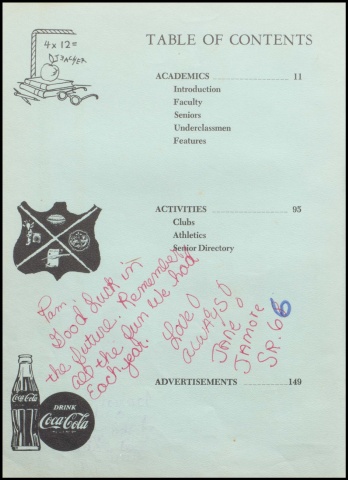 4 x 12 =
TABLE OF CONTENTS
ACADEMICS 11
Introduction
Faculty
Seniors
Underclassmen
Features
ACTIVITIES 95
Clubs
Athletics
Senior Directory
Pam,
Good luck in
the future. Remember
all the fun we had
Each year.
Love
always
JANE
JAMOTE
SR. 66
ADVERTISEMENTS 149
Coca-Cola
DRINK
Coca-Cola